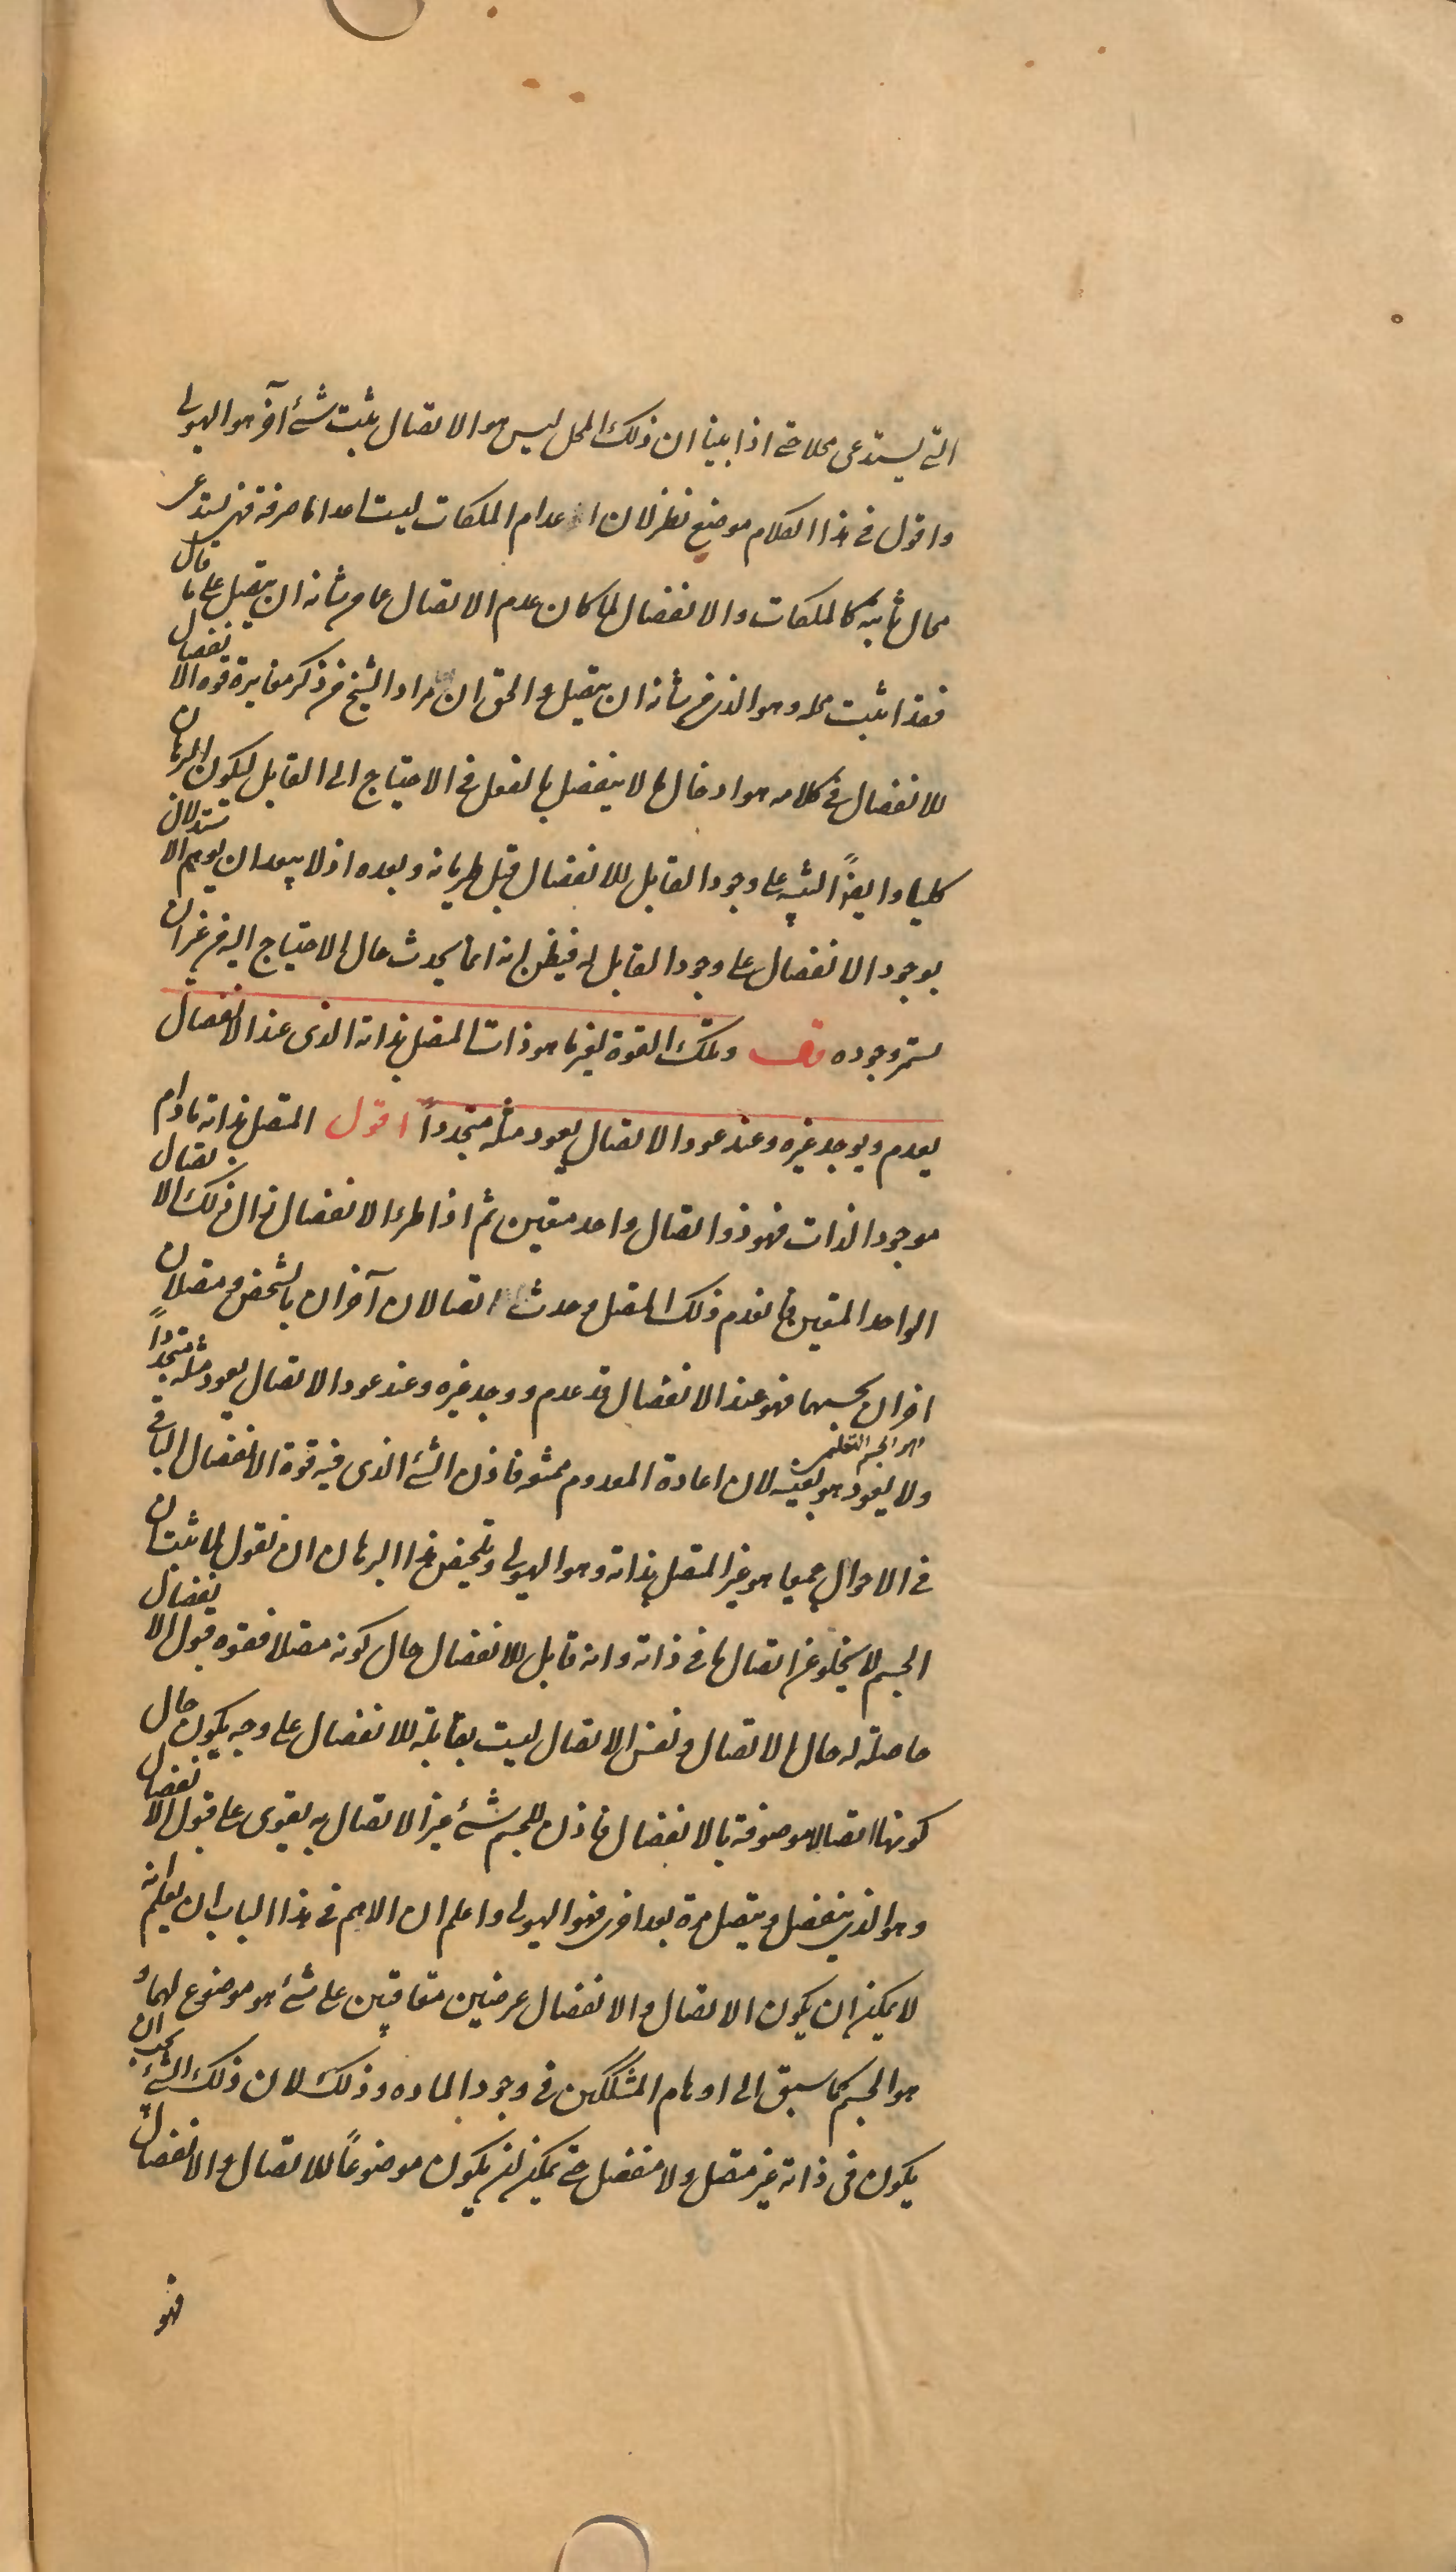 التى يستدعى محلا حتى اذا بينا ان ذلك المحل ليس هو الاتصال يثبت شئ آخر هو الهيولى
واقول فى هذا الكلام موضع نظر لان اعدام الملكات ليست اعداما صرفة فهى تستدعى
محال ثابتة كالملكات والانفصال لما كان عدم الاتصال عما من شانه ان يتصل على ما قال
فقد اثبت محله وهو الذى من شانه ان يتصل والحق ان مراد الشيخ من ذكر مغايرة قوة الانفصال
للانفصال فى كلامه هو ادخال ما لا ينفصل بالفعل فى الاحتياج الى القابل ليكون البرهان
كليا وايضاً التنبيه على وجود القابل للانفصال قبل طريانه وبعده اذ لا يبعد ان يوهم الاستدلال
بوجود الانفصال على وجود القابل له فيظن انه انما يحدث حال الاحتياج اليه من غير ان
يستمر وجوده قوله وتلك القوة لغير ما هو ذات المتصل بذاته الذى عند الانفصال
يعدم ويوجد غيره وعند عود الاتصال يعود مثله متجدداً اقول المتصل بذاته مادام
موجود الذات فهو ذو اتصال واحد متعين ثم اذا طرء الانفصال زال ذلك الاتصال
الواحد المتعين فانعدم ذلك المتصل وحدث اتصالان آخران بالشخص ومتصلان
اخران بحسبهما فهو عند الانفصال قد عدم ووجد غيره وعند عود الاتصال يعود مثله متجدداً
وهو الجسم التعليمى
ولا يعود هو بعينه لان اعادة المعدوم ممتنعه فاذن الشئ الذى فيه قوة الانفصال الباقى
فى الاحوال جميعا هو غير المتصل بذاته وهو الهيولى وتلخيص هذا البرهان ان نقول لما ثبت ان
الجسم لا يخلو عن اتصال ما فى ذاته وانه قابل للانفصال حال كونه متصلا فقوه قبول الانفصال
حاصلة له حال الاتصال ونفس الاتصال ليست بقابلة للانفصال على وجه يكون حال
كونها اتصالا موصوفة بالانفصال فاذن للجسم شئ غير الاتصال به يقوى على قبول الانفصال
وهو الذى ينفصل ويتصل مرة بعد اخرى فهو الهيولى واعلم ان الاهم فى هذا الباب ان يعلم انه
لا يمكن ان يكون الاتصال والانفصال عرضين متعاقبين على شئ هو موضوع لهما و
هو الجسم كما سبق الى اوهام المشككين فى وجود الماده وذلك لان ذلك الشئ يجب ان
يكون فى ذاته غير متصل ولا منفصل حتى يمكن ان يكون موضوعاً للاتصال والانفصال
فهو